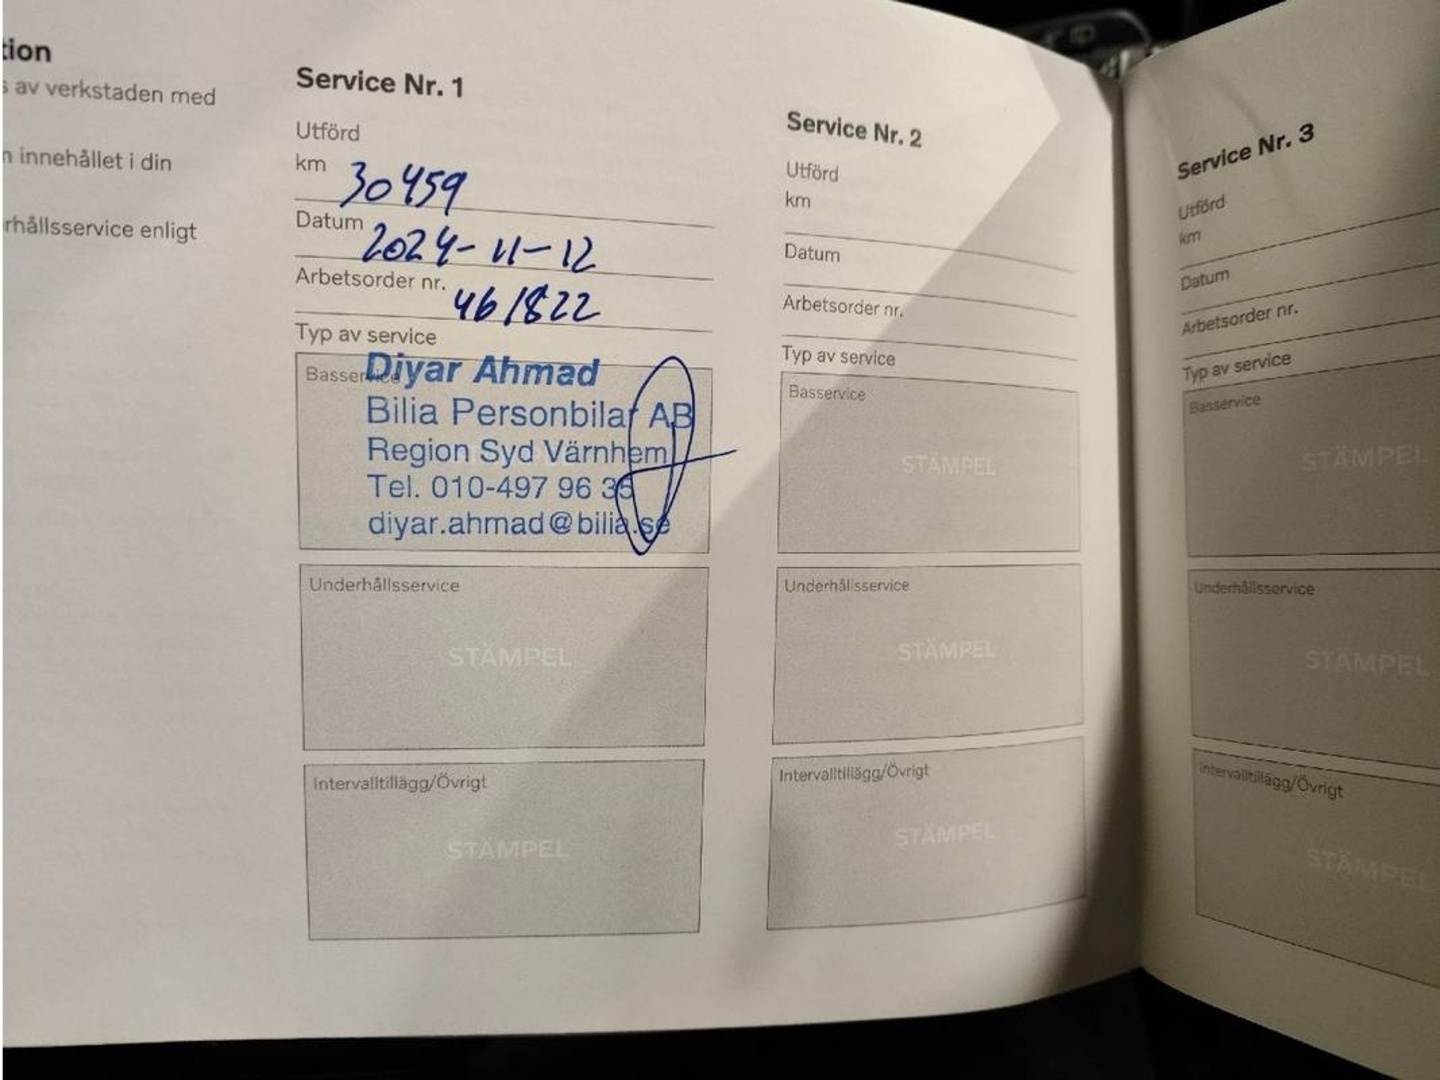 tion
s av verkstaden med
n innehållet i din
rhållsservice enligt
Service Nr. 1
Utförd
km 30459
Datum 2024-11-12
Arbetsorder nr. 461822
Typ av service
Basservice
Diyar Ahmad
Bilia Personbilar AB
Region Syd Värnhem
Tel. 010-497 96 35
diyar.ahmad@bilia.se
Underhållsservice
STÄMPEL
Intervalltillägg/Övrigt
STÄMPEL
Service Nr. 2
Utförd
km
Datum
Arbetsorder nr.
Typ av service
Basservice
STÄMPEL
Underhållsservice
STÄMPEL
Intervalltillägg/Övrigt
STÄMPEL
Service Nr. 3
Utförd
km
Datum
Arbetsorder nr.
Typ av service
Basservice
STÄMPEL
Underhållsservice
STÄMPEL
Intervalltillägg/Övrigt
STÄMPEL